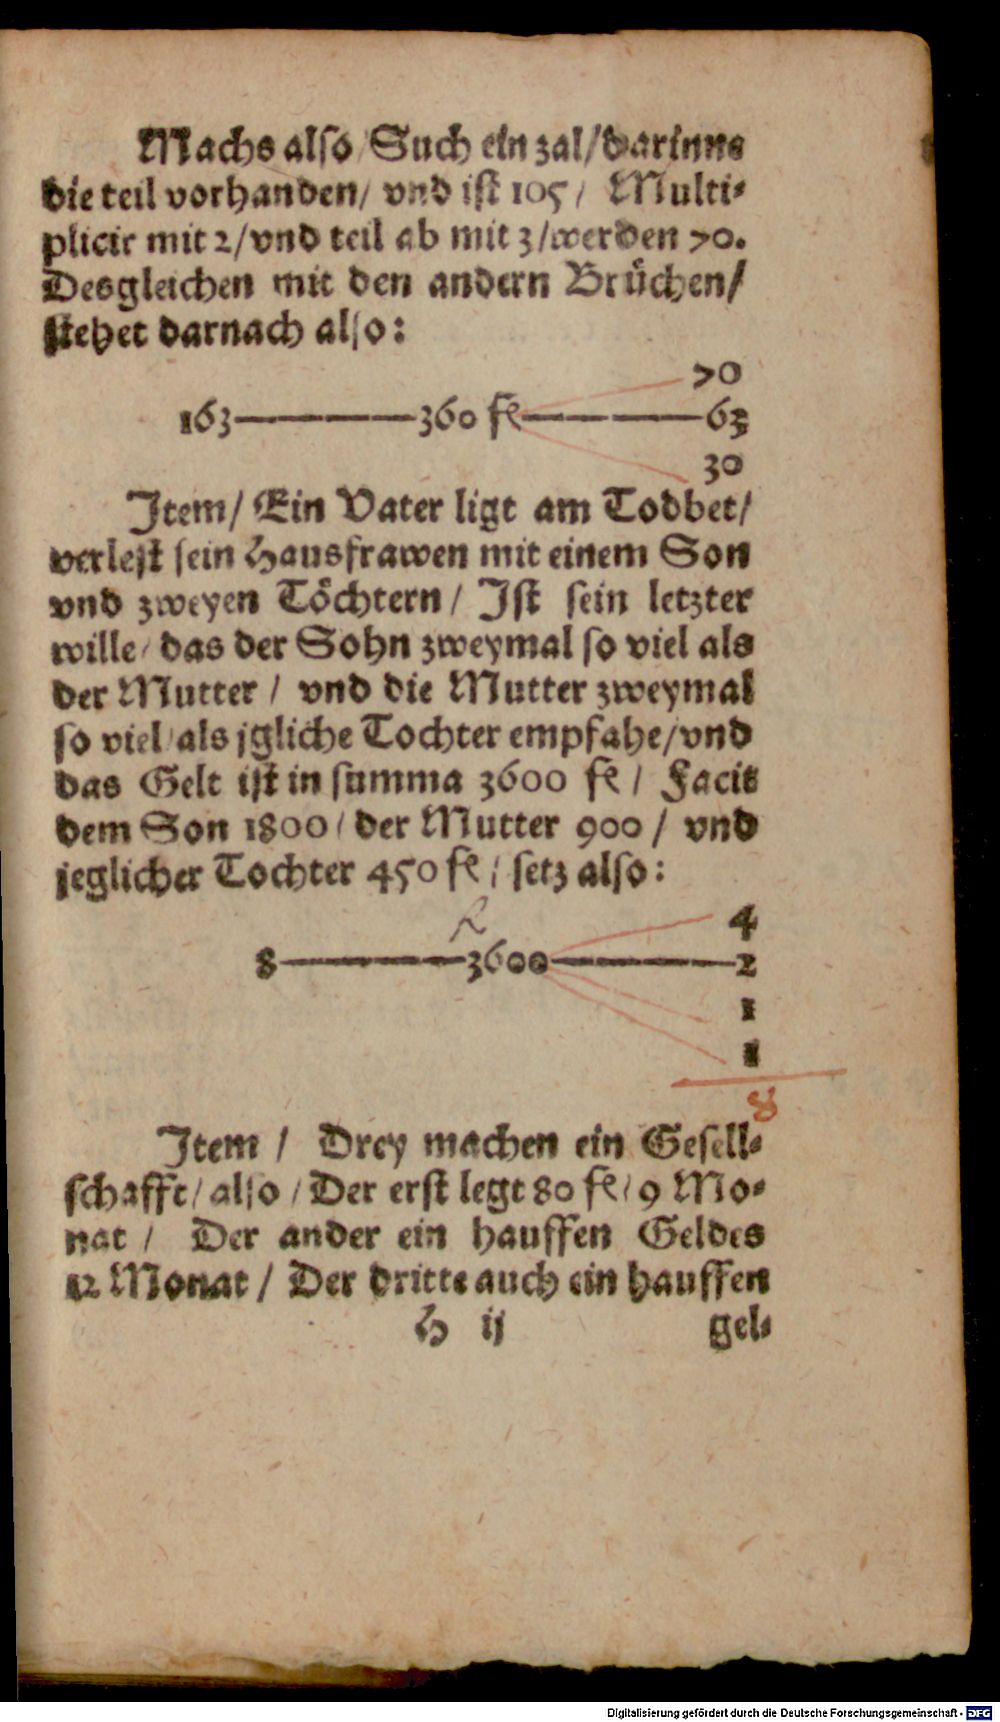 Machs also / Such ein zal / darinne
die teil vorhanden / vnd ist 105 / Multi-
plicir mit 2 / vnd teil ab mit 3 / werden 70.
Desgleichen mit den andern Brüchen /
stehet darnach also:
70
163 360 fl 63
30
Item / Ein Vater ligt am Todbet /
verlest sein Hausfrawen mit einem Son
vnd zweyen Töchtern / Ist sein letzter
wille / das der Sohn zweymal so viel als
der Mutter / vnd die Mutter zweymal
so viel / als jgliche Tochter empfahe / vnd
das Gelt ist in summa 3600 fl / Facit
dem Son 1800 / der Mutter 900 / vnd
jeglicher Tochter 450 fl / setz also:
fl 4
8 3600 2
1
1
8
Item / Drey machen ein Gesell-
schafft / also / Der erst legt 80 fl / 9 Mo-
nat / Der ander ein hauffen Geldes
12 Monat / Der dritte auch ein hauffen
H ij gel-
Digitalisierung gefördert durch die Deutsche Forschungsgemeinschaft - DFG